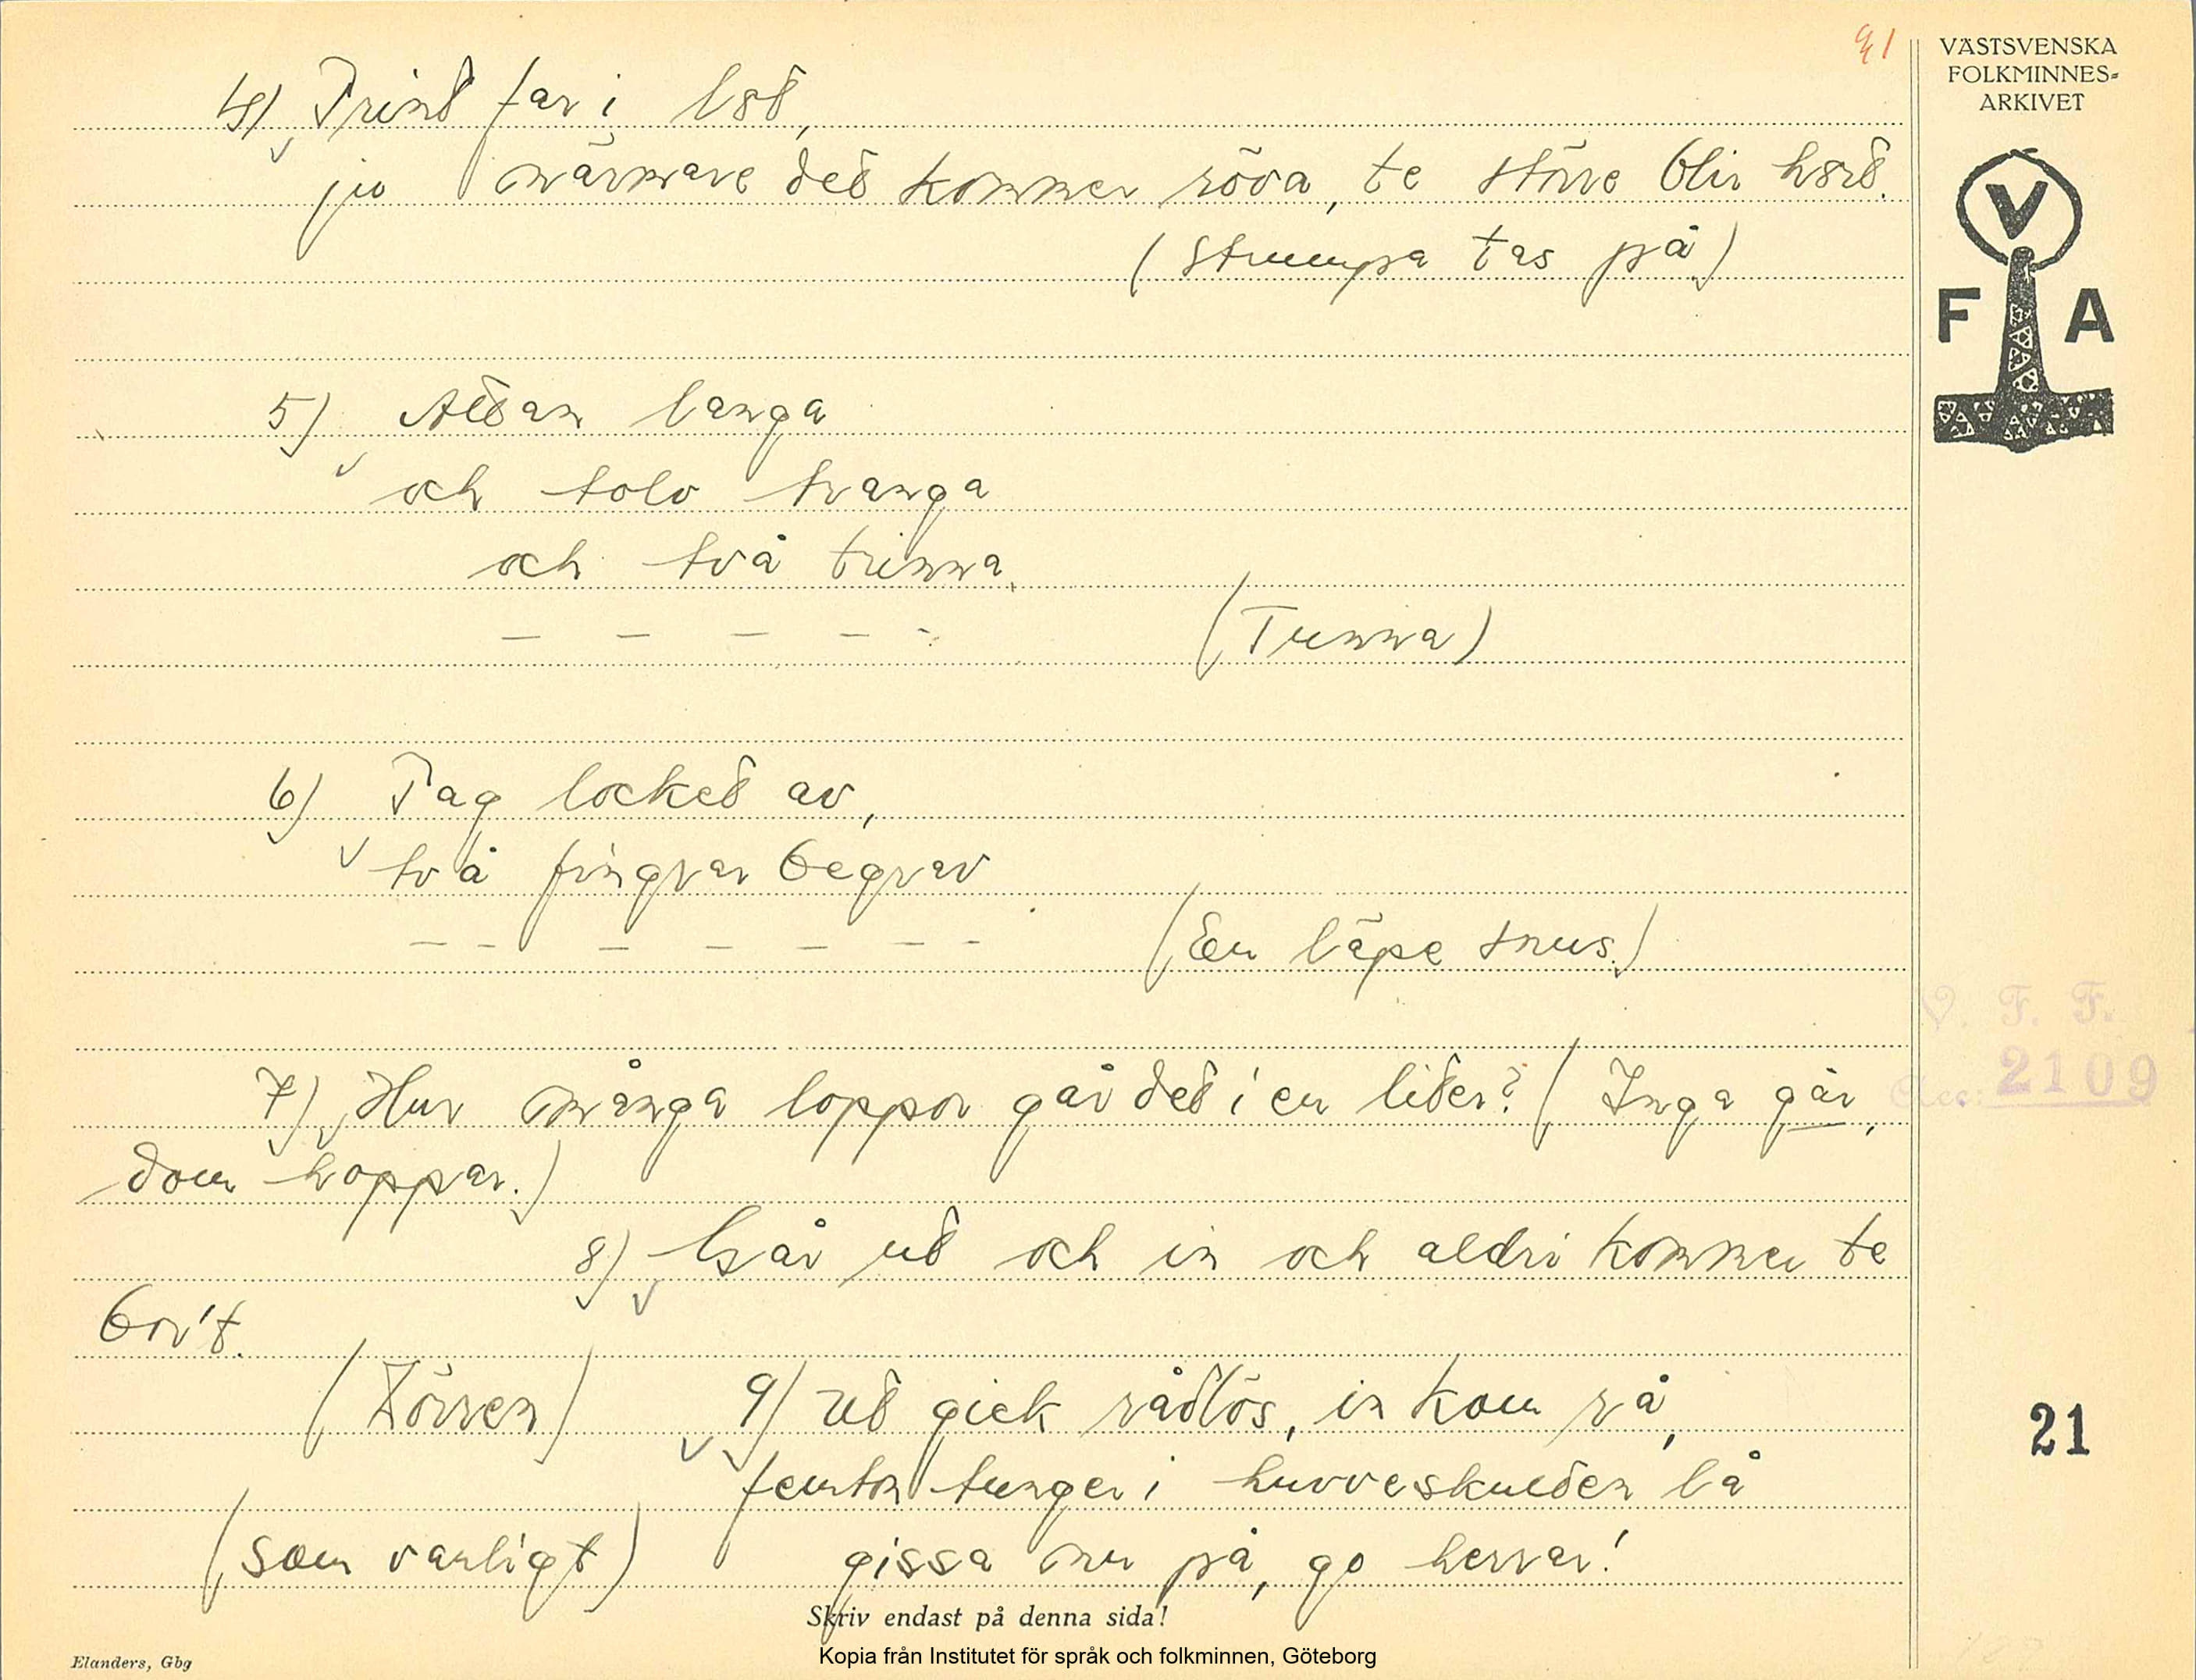 91
VÄSTSVENSKA
FOLKMINNES=
ARKIVET
V
F A
4) Trint far i löt,
ju närmare det kommer röva, te större blir hört.
(Strumpa tas på)
5) Attan langa
och tolv tvanga
och två trinna,
— — — — -
(Tunna)
6) Tag locket av,
två fingrar begrav
— — — — — — -
(En läpe snus.)
V. F. F.
Acc: 2109
7) Hur många loppor går det i en liter? (Inga går,
dom hoppar.)
8) Går ut och in och aldri kommer te
bort.
(Dörren) 9) Ut gick rådlös, in kom rå,
femton tunger i huvveskulten lå
(som vanligt) gissa nu på, go herrar!
21
Skriv endast på denna sida!
Elanders, Gbg
Kopia från Institutet för språk och folkminnen, Göteborg